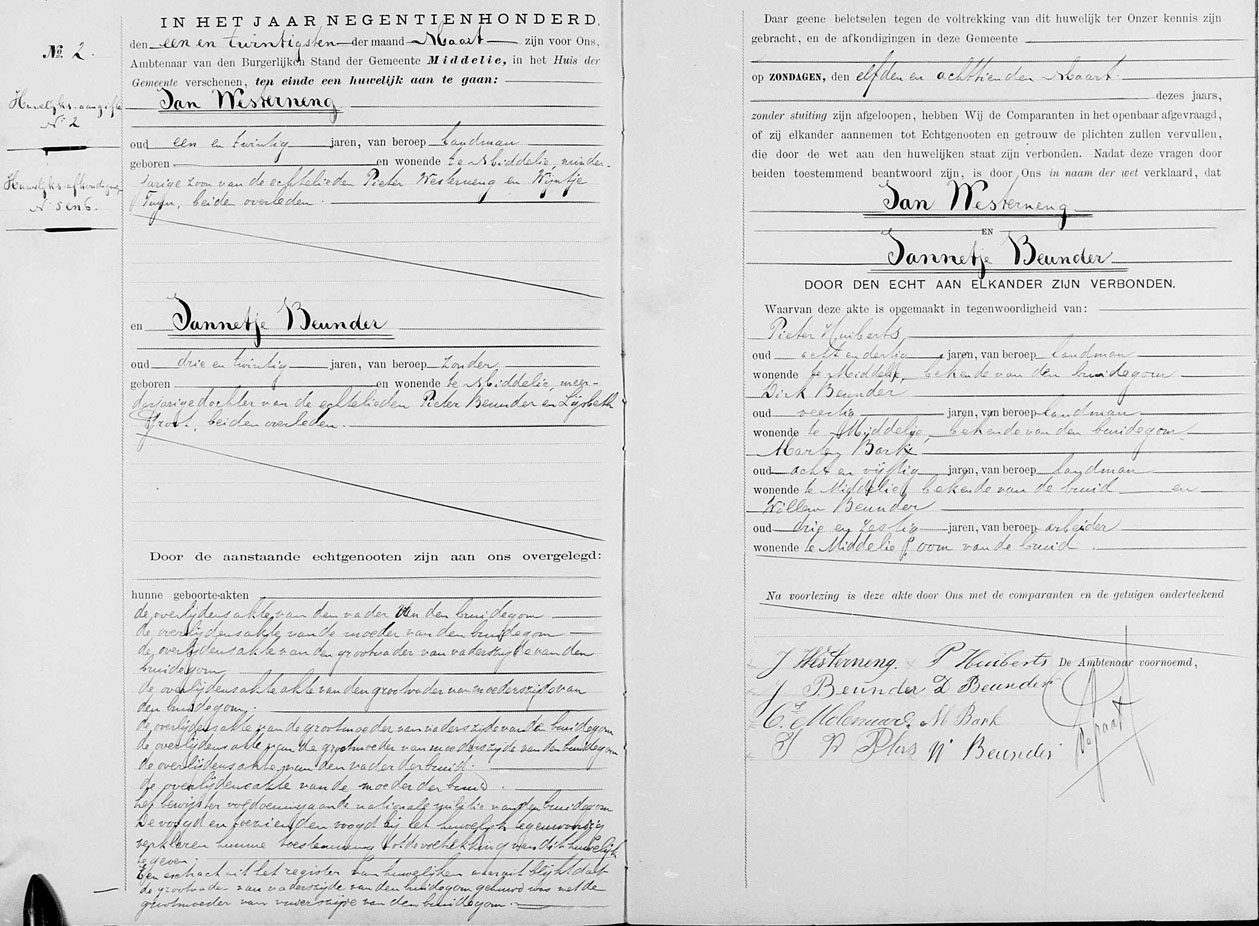 No. 2.
Huwelijks-aangifte
No 2
Huwelijksafkondiging
No 5 en 6.
IN HET JAAR NEGENTIENHONDERD,
den een en twintigsten der maand Maart zijn voor Ons,
Ambtenaar van den Burgerlijken Stand der Gemeente Middelie, in het Huis der
Gemeente verschenen, ten einde een huwelijk aan te gaan:
Jan Westerneng
oud een en twintig jaren, van beroep landman
geboren en wonende te Middelie, minder-
jarige zoon van de echtelieden Pieter Westerneng en Wijntje
Tuijn, beiden overleden.
en Jannetje Beunder
oud drie en twintig jaren, van beroep zonder
geboren en wonende te Middelie, meer-
derjarige dochter van de echtelieden Pieter Beunder en Lijsbeth
Groot, beiden overleden.
Door de aanstaande echtgenooten zijn aan ons overgelegd:
hunne geboorte-akten
de overlijdensakte van den vader van den bruidegom
de overlijdensakte van de moeder van den bruidegom
de overlijdensakte van den grootvader van vaderszijde van den
bruidegom
de overlijdensakte akte van den grootvader van moederszijde van
den bruidegom.
de overlijdensakte van de grootmoeder van vaderszijde van den bruidegom
de overlijdensakte van de grootmoeder van moederszijde van den bruidegom
de overlijdensakte van den vader der bruid.
de overlijdensakte van de moeder der bruid.
het bewijs ter voldoening aan de nationale militie van den bruidegom
De voogd en toeziende voogd bij het huwelijk tegenwoordig
verklaren hunne toestemming tot de voltrekking van dit huwelijk
te geven.
Een extract uit het register van huwelijken waaruit blijkt dat
de grootvader van vaderszijde van den bruidegom gehuwd was met de
grootmoeder van vaderszijde van den bruidegom.
Daar geene beletselen tegen de voltrekking van dit huwelijk ter Onzer kennis zijn
gebracht, en de afkondigingen in deze Gemeente
op ZONDAGEN, den elfden en achttienden Maart.
dezes jaars,
zonder stuiting zijn afgeloopen, hebben Wij de Comparanten in het openbaar afgevraagd,
of zij elkander aannemen tot Echtgenooten en getrouw de plichten zullen vervullen,
die door de wet aan den huwelijken staat zijn verbonden. Nadat deze vragen door
beiden toestemmend beantwoord zijn, is door Ons in naam der wet verklaard, dat
Jan Westerneng
EN
Jannetje Beunder
DOOR DEN ECHT AAN ELKANDER ZIJN VERBONDEN.
Waarvan deze akte is opgemaakt in tegenwoordigheid van:
Pieter Huiberts,
oud acht en dertig jaren, van beroep landman
wonende te Middelie, bekende van den bruidegom
Dirk Beunder
oud veertig jaren, van beroep landman
wonende te Middelie, bekende van den bruidegom
Marten Bark
oud acht en vijftig jaren, van beroep landman
wonende te Middelie, bekende van de bruid en
Willem Beunder
oud drie en zestig jaren, van beroep arbeider
wonende te Middelie, oom van de bruid.
Na voorlezing is deze akte door Ons met de comparanten en de getuigen onderteekend
J Westerneng P Huiberts De Ambtenaar voornoemd,
J Beunder D Beunder
C. Molenaar. M Bark
W Beunder